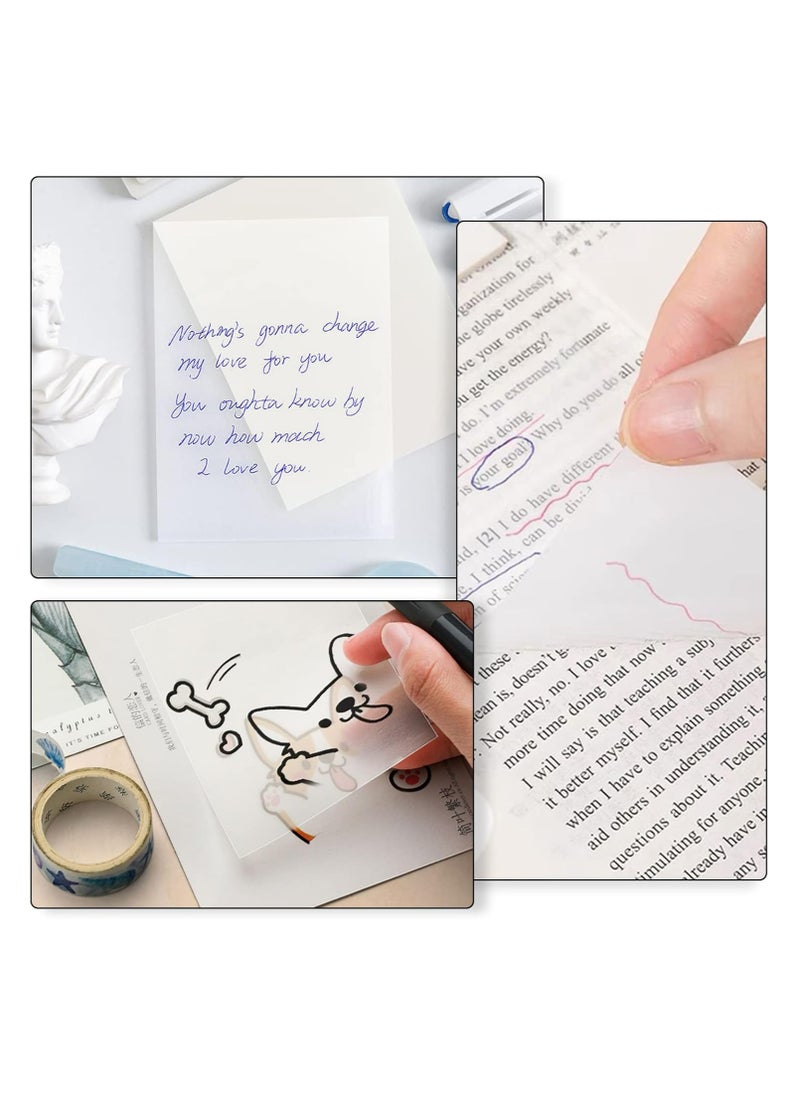 Nothing's gonna change
my love for you
You oughta know by
now how much
I love you.
ganization for
he globe tirelessly
ave your own weekly
ou get the energy?
do. I'm extremely fortunate
I love doing.
is your goal? Why do you do all of
nd, [2] I do have different
e, I think, can be divi
n of scien
these
ean is, doesn't g
. Not really, no. I love
more time doing that now
I will say is that teaching a subj
it better myself. I find that it furthers
when I have to explain something
aid others in understanding it.
questions about it. Teachin
timulating for anyone,
already have in
any s
hat
alyptus
IT'S TIME FO